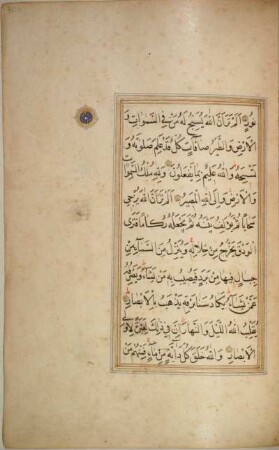 نُورٍ أَلَمْ تَرَ أَنَّ اللهَ يُسَبِّحُ لَهُ مَنْ فِي السَّمٰوَاتِ وَ
الْأَرْضِ وَالطَّيْرُ صَافَّاتٍ كُلٌّ قَدْ عَلِمَ صَلَوتَهُ وَ
تَسْبِيحَهُ وَاللهُ عَلِيمٌ بِمَا يَفْعَلُونَ وَلِلّٰهِ مُلْكُ السَّمٰوَاتِ
وَالْأَرْضِ وَإِلَى اللهِ الْمَصِيرُ أَلَمْ تَرَ أَنَّ اللهَ يُزْجِي
سَحَابًا ثُمَّ يُؤَلِّفُ بَيْنَهُ ثُمَّ يَجْعَلُهُ رُكَامًا فَتَرَى
الْوَدْقَ يَخْرُجُ مِنْ خِلَالِهِ وَيُنَزِّلُ مِنَ السَّمَاءِ مِنْ
جِبَالٍ فِيهَا مِنْ بَرَدٍ فَيُصِيبُ بِهِ مَنْ يَشَاءُ وَيَصْرِفُهُ
عَنْ مَنْ يَشَاءُ يَكَادُ سَنَا بَرْقِهِ يَذْهَبُ بِالْأَبْصَارِ
يُقَلِّبُ اللهُ اللَّيْلَ وَالنَّهَارَ إِنَّ فِي ذٰلِكَ لَعِبْرَةً لِأُولِي
الْأَبْصَارِ وَاللهُ خَلَقَ كُلَّ دَابَّةٍ مِنْ مَاءٍ فَمِنْهُمْ مَنْ